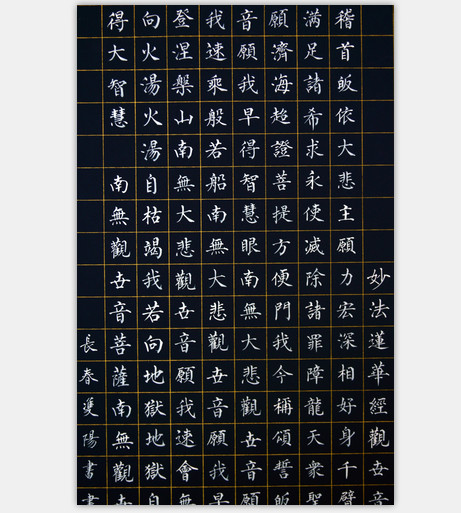 妙法蓮華經觀世音
稽首皈依大悲主願力宏深相好身千臂
滿足諸希求永使滅除諸罪障龍天衆聖
願濟海超證菩提方便門我今稱頌誓皈
音願我早得智慧眼南無大悲觀世音願
我速乘般若船南無大悲觀世音願我早
登涅槃山南無大悲觀世音願我速會無
向火湯火湯自枯竭我若向地獄地獄自
得大智慧 南無觀世音菩薩南無觀世
長春雙陽書